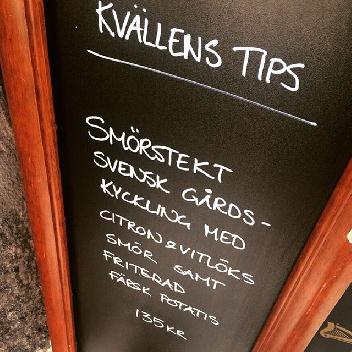 KVÄLLENS TIPS
SMÖRSTEKT
SVENSK GÅRDS-
KYCKLING MED
CITRON & VITLÖKS
SMÖR SAMT
FRITERAD
FÄRSK POTATIS
135 KR